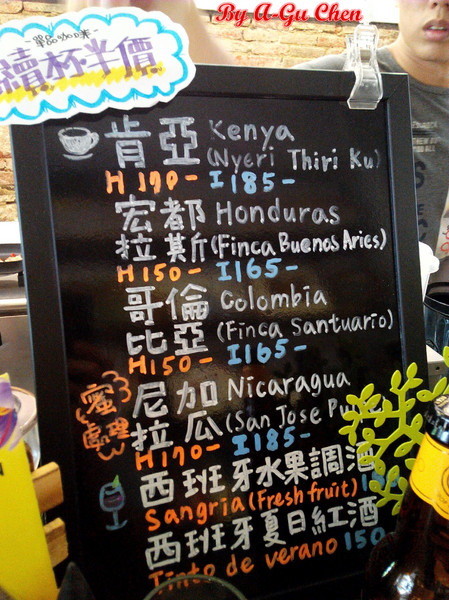 By A-Gu Chen
單品咖啡
續杯半價
肯亞 Kenya
(Nyeri Thiri Ku)
H170- I185-
宏都 Honduras
拉斯 (Finca Buenos Aries)
H150- I165-
哥倫 Colombia
比亞 (Finca Santuario)
H150- I165-
蜜處理
尼加 Nicaragua
拉瓜 (San Jose
H170- I185-
西班牙水果調酒
Sangria (Fresh fruit)
西班牙夏日紅酒
Tinto de verano 150